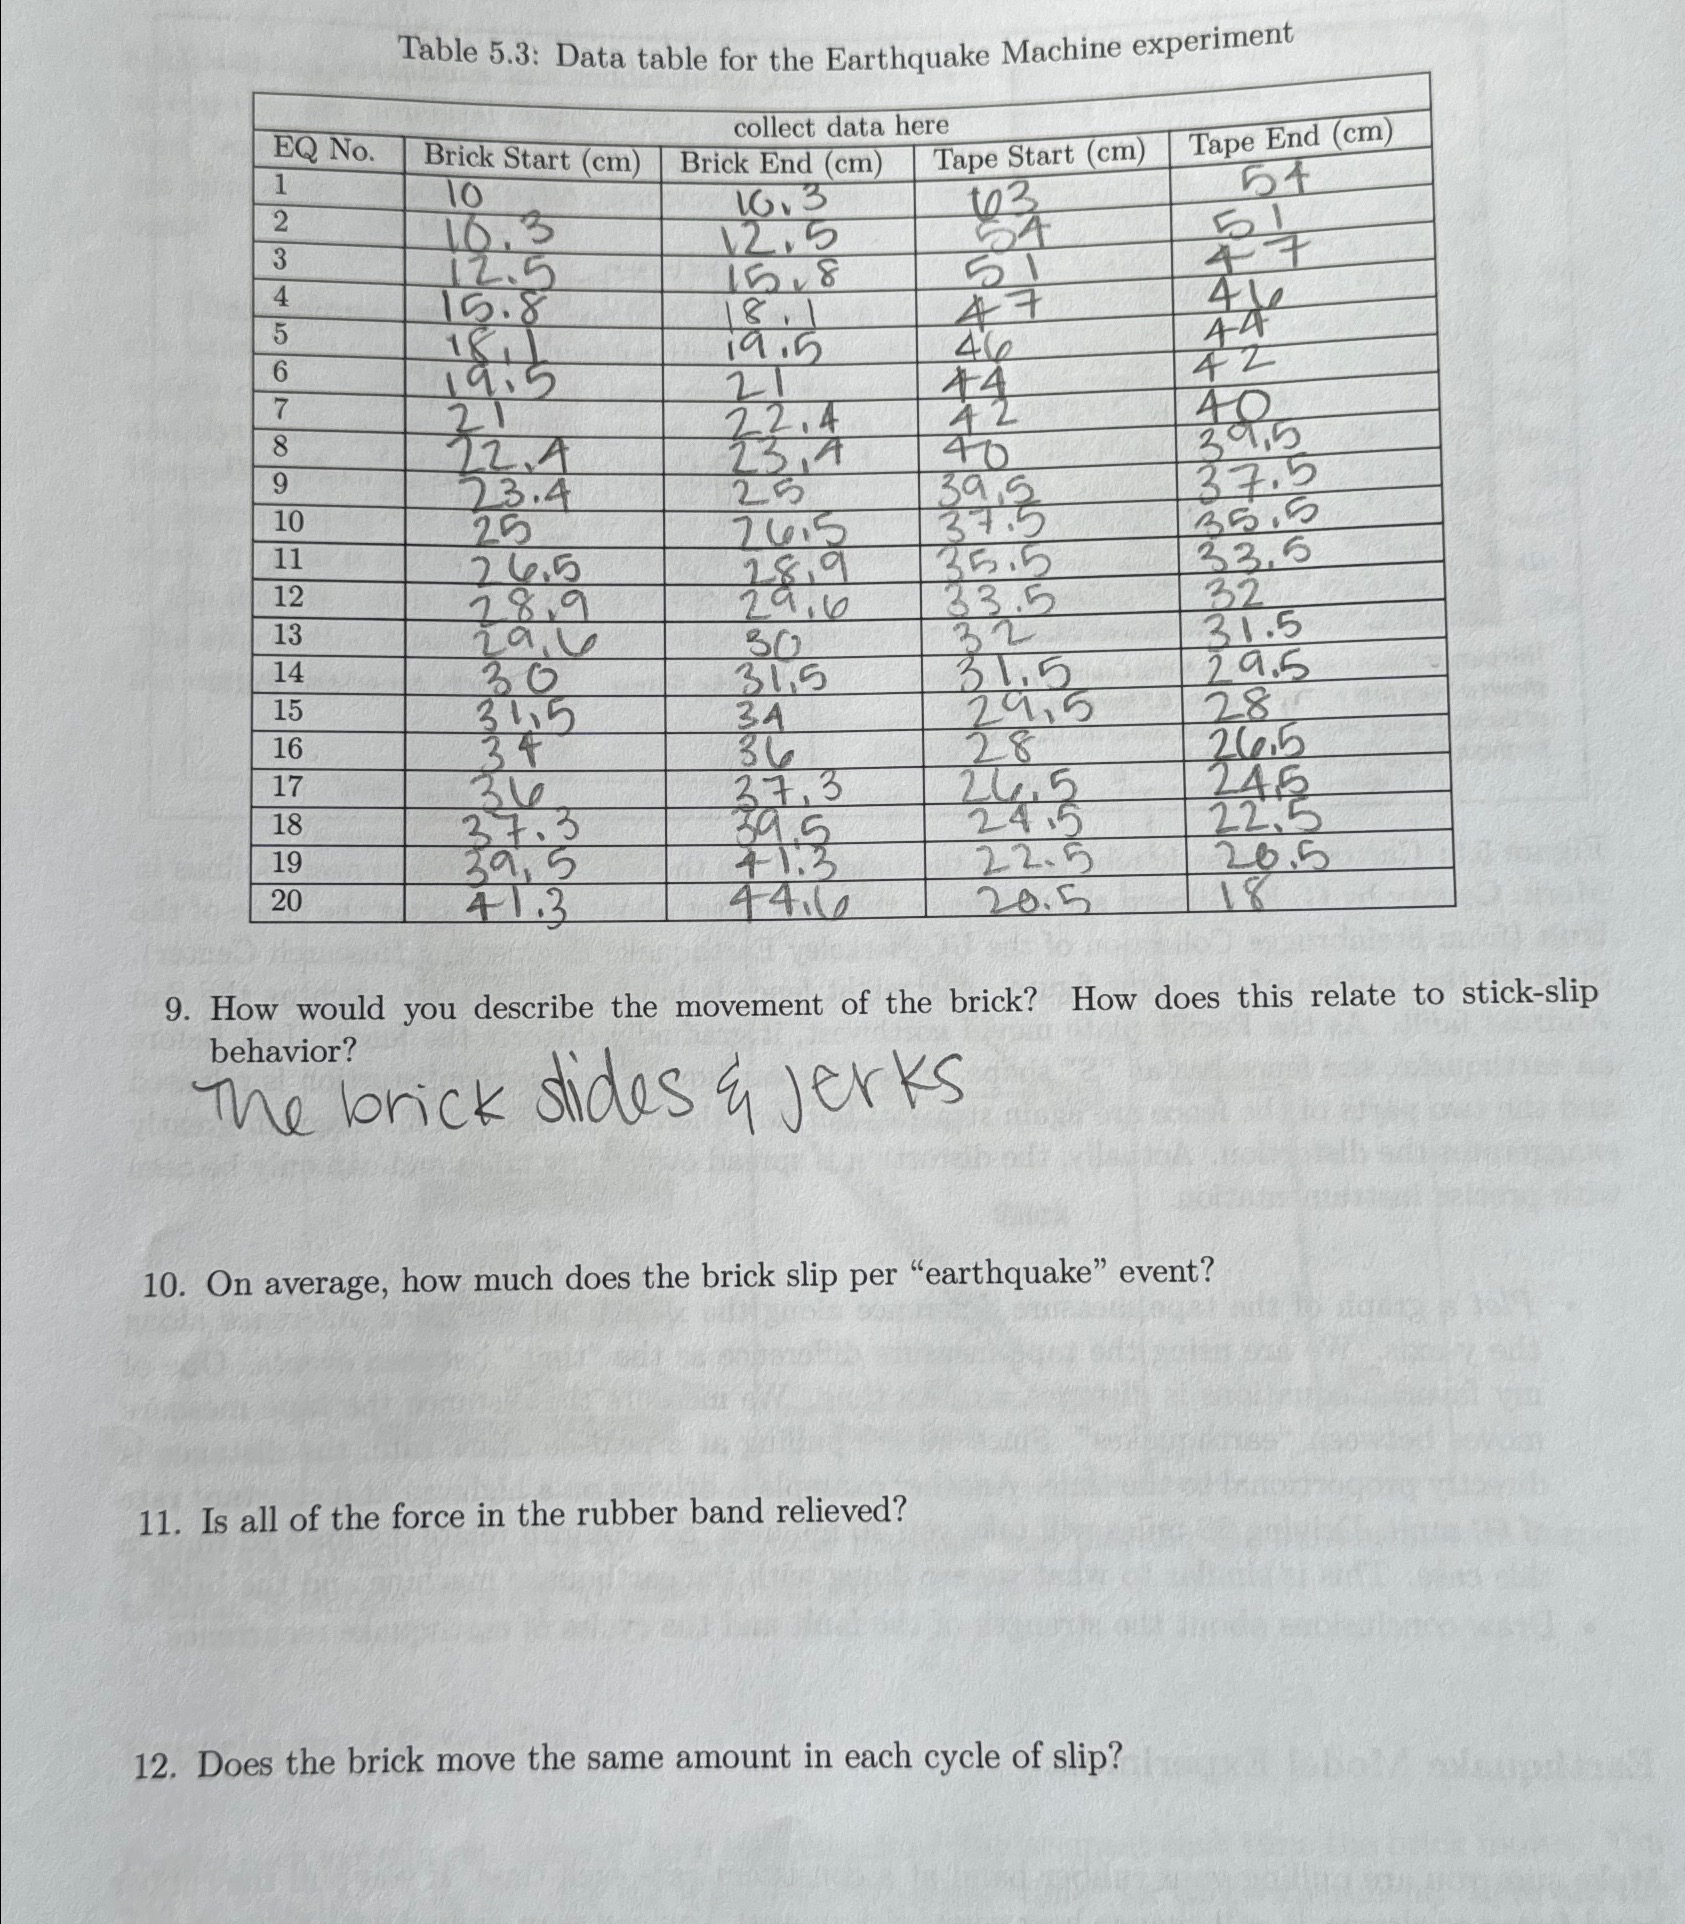 Table 5.3: Data table for the Earthquake Machine experiment
collect data here
EQ No. Brick Start (cm) Brick End (cm) Tape Start (cm) Tape End (cm)
1 10 10.3 63 54
2 10.3 12.5 54 51
3 12.5 15.8 51 47
4 15.8 18.1 47 46
5 18.1 19.5 46 44
6 19.5 21 44 42
7 21 22.4 42 40
8 22.4 23.4 40 39.5
9 23.4 25 39.5 37.5
10 25 26.5 37.5 35.5
11 26.5 28.9 35.5 33.5
12 28.9 29.6 33.5 32
13 29.6 30 32 31.5
14 30 31.5 31.5 29.5
15 31.5 34 29.5 28
16 34 36 28 26.5
17 36 37.3 26.5 24.5
18 37.3 39.5 24.5 22.5
19 39.5 41.3 22.5 20.5
20 41.3 44.6 20.5 18
9. How would you describe the movement of the brick? How does this relate to stick-slip
behavior?
The brick slides & jerks
10. On average, how much does the brick slip per “earthquake” event?
11. Is all of the force in the rubber band relieved?
12. Does the brick move the same amount in each cycle of slip?